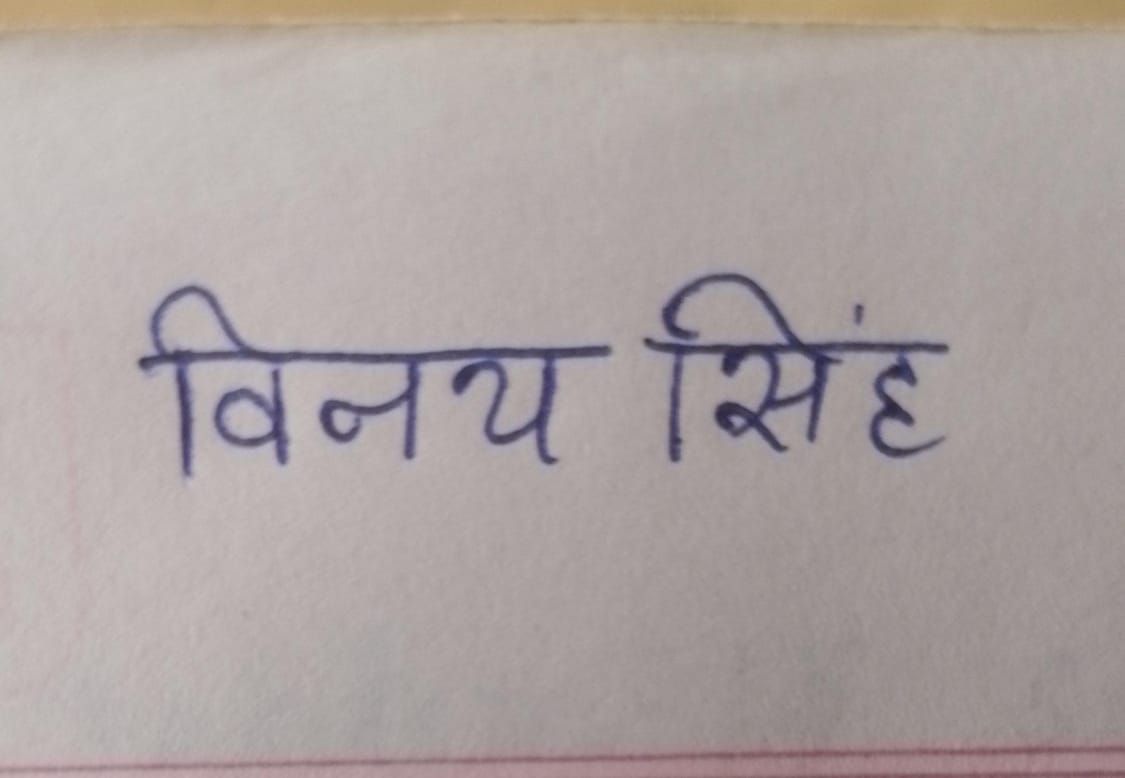 विनय सिंह